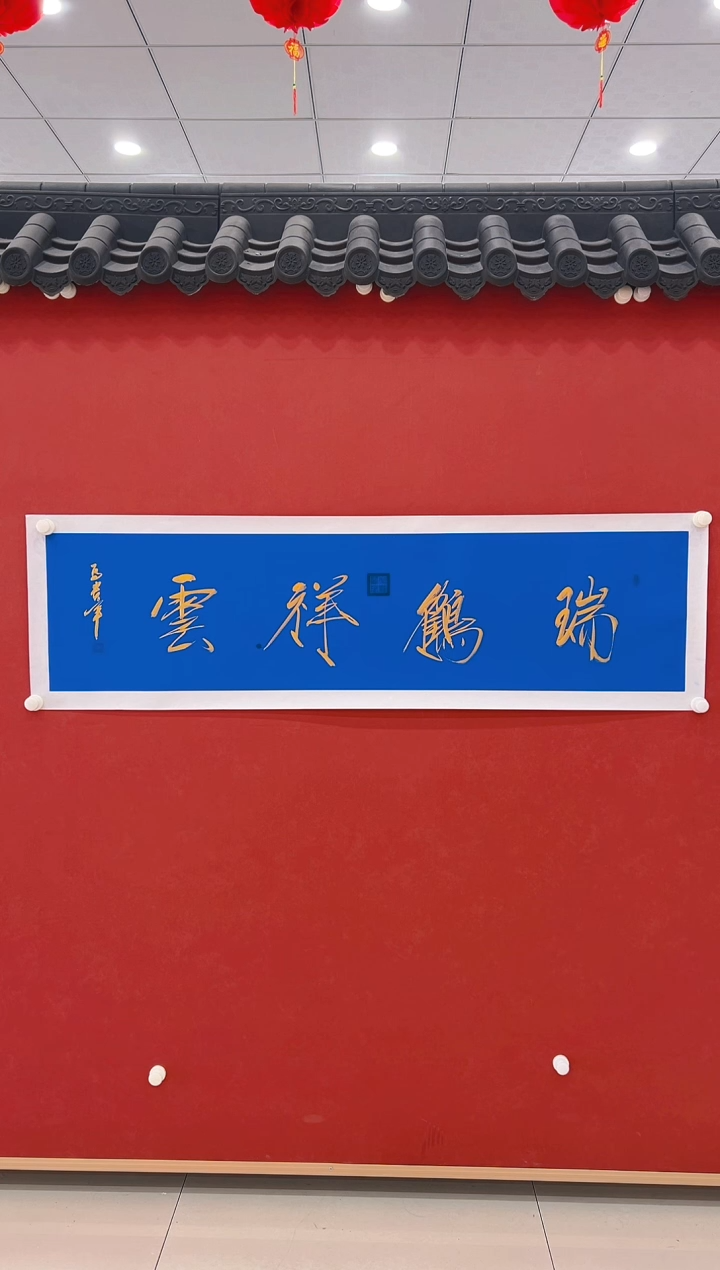 瑞鶴祥雲
福